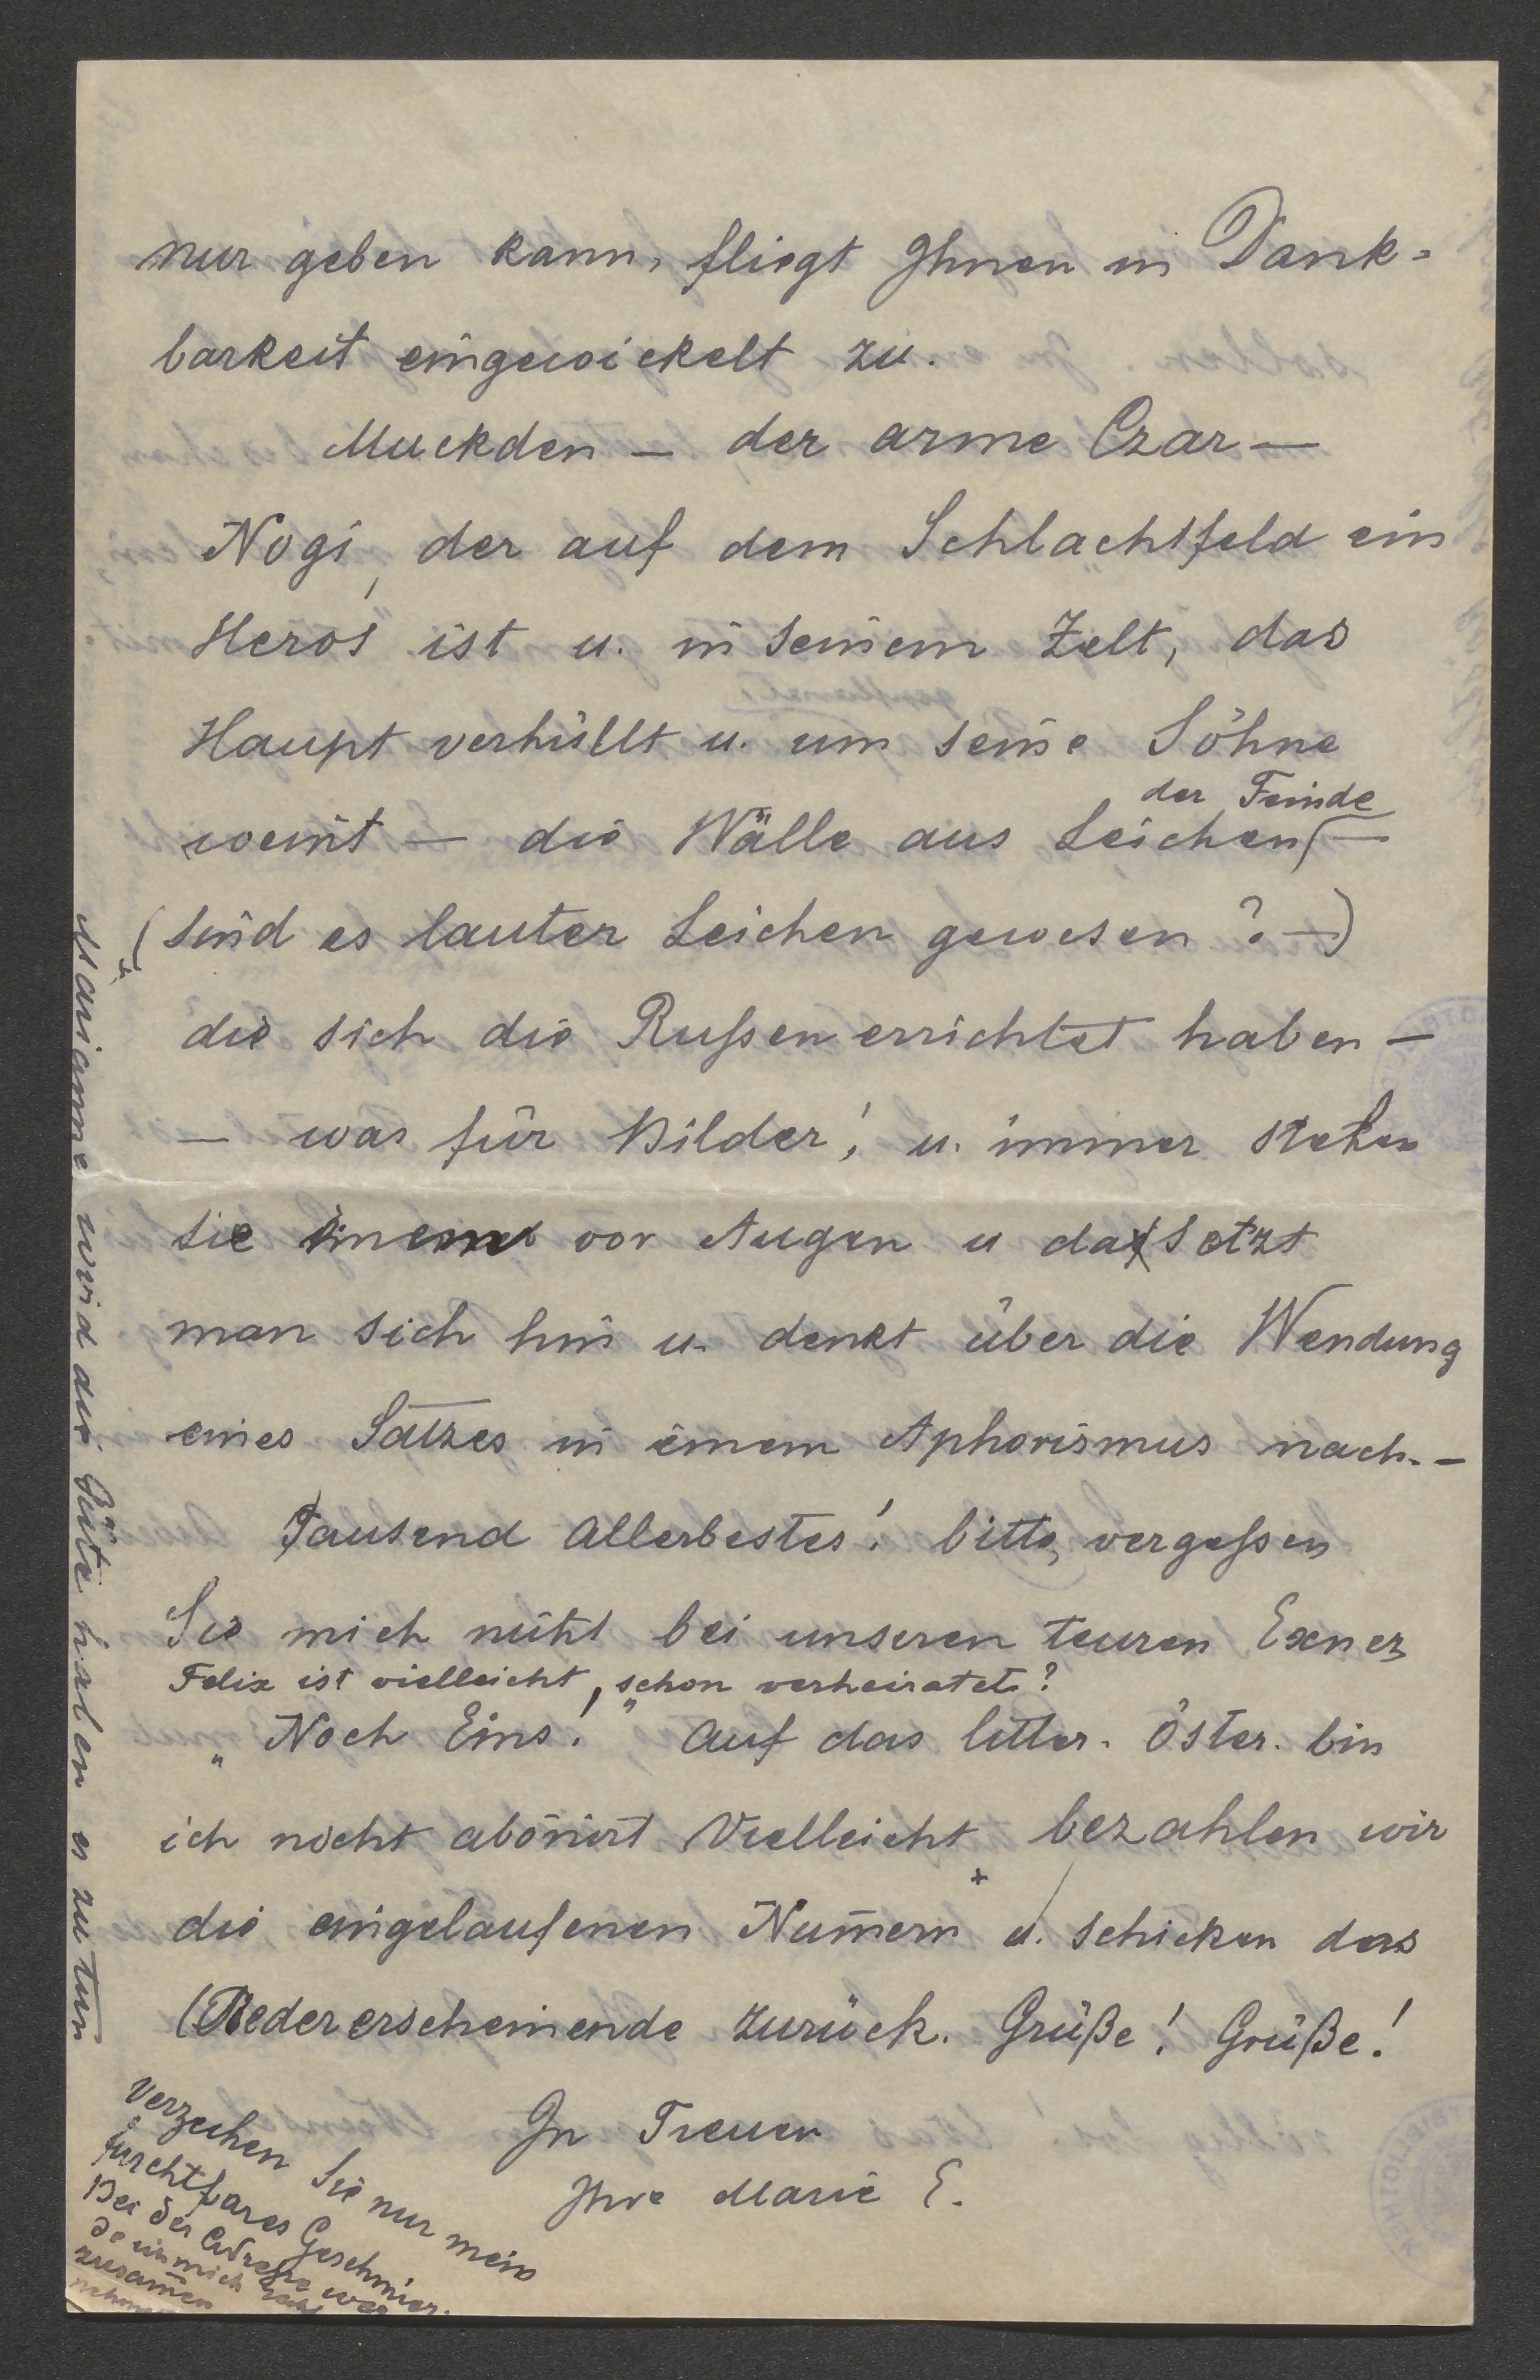 nur geben kann, fliegt Ihnen in Dank-
barkeit eingewickelt zu.
Muckden — der arme Czar —
Nogi, der auf dem Schlachtfeld ein
Heros ist u. in seinem Zelt, das
Haupt verhüllt u. um seine Söhne
der Feinde
weint — die Wälle aus Leichen —
(sind es lauter Leichen gewesen? —)
die sich die Rußen errichtet haben —
— was für Bilder! u. immer stehen
sie einem vor Augen u da setzt
man sich hin u. denkt über die Wendung
eines Satzes in einem Aphorismus nach. —
Tausend Allerbestes! bitte, vergeßen
Sie mich nicht bei unseren teuren Exner
Felix ist vielleicht, schon verheiratet?
„Noch Eins!" Auf das litter. Öster. bin
ich nicht abonirt Vielleicht bezahlen wir
die eingelaufenen Num̄ern + u. schicken das
Wiedererscheinende zurück. Grüße! Grüße!
In Treuen
Ihre Marie E.
Verzeihen Sie nur mein
furchtbares Geschmier.
Bei der Adreße
zusam̄en
+ Marianne wird die Güte haben es zu tun